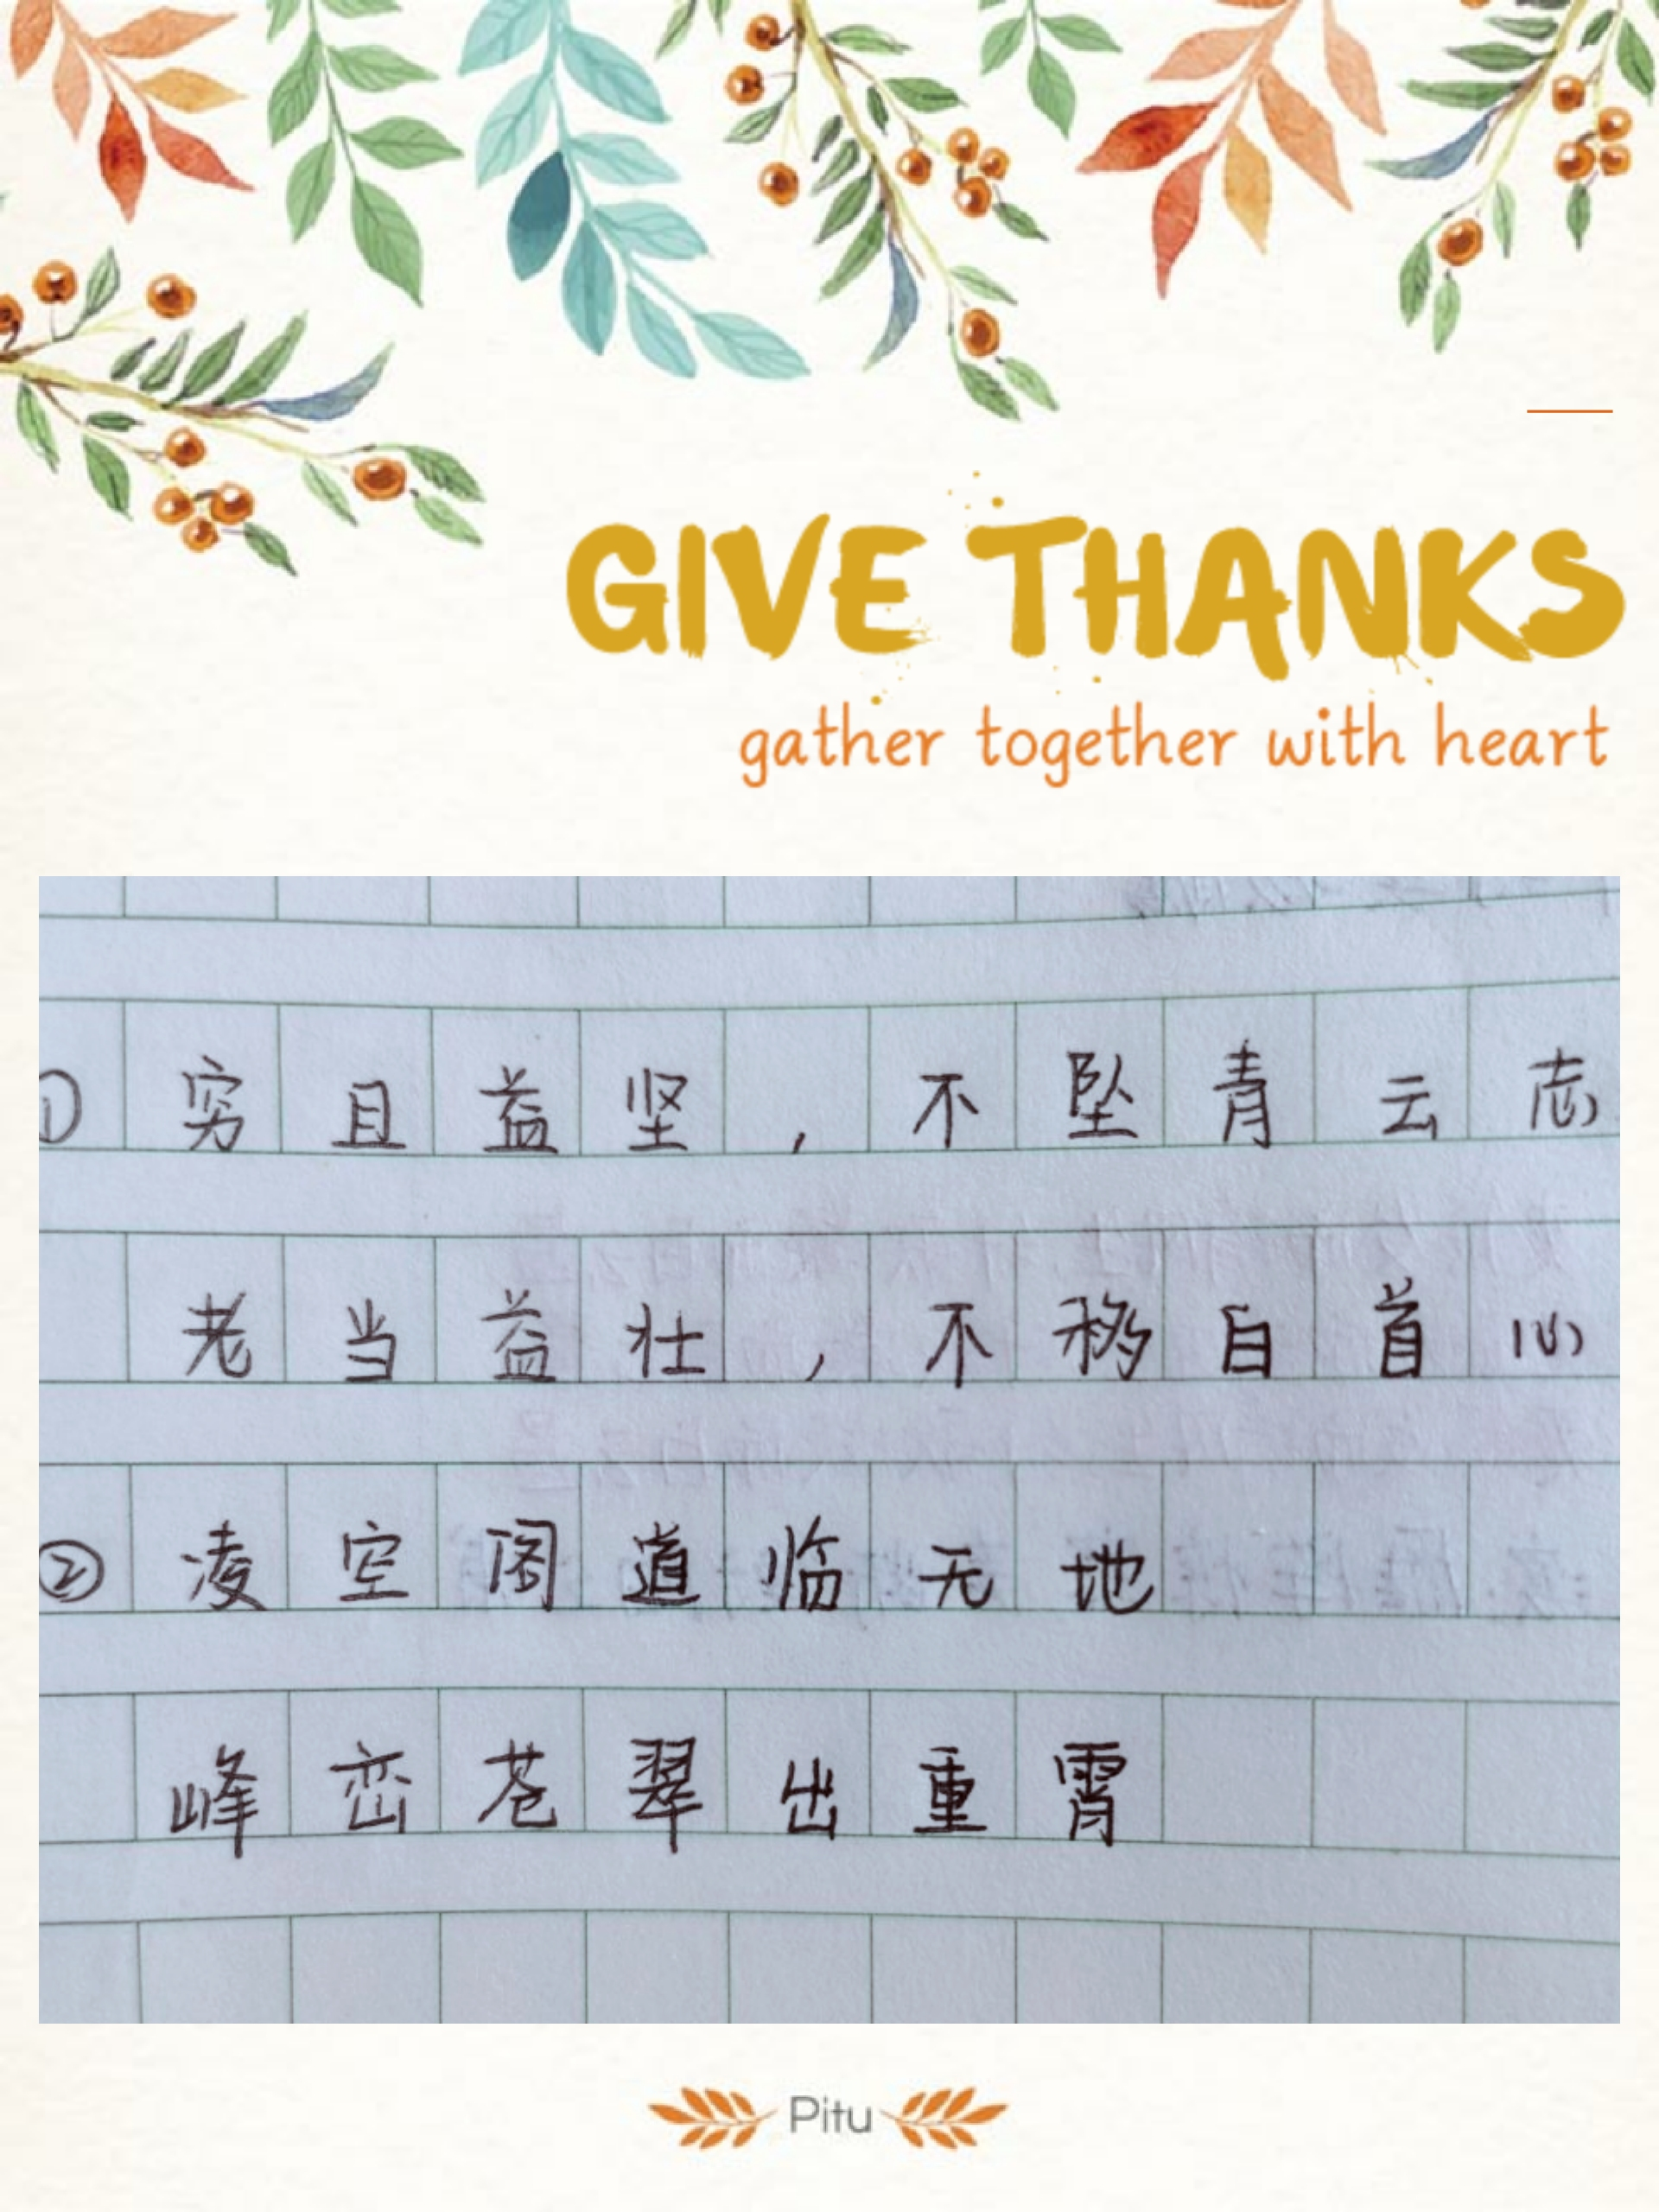 GIVE THANKS
gather together with heart
① 穷且益坚，不坠青云志
老当益壮，不移白首心
② 凌空阁道临无地
峰峦苍翠出重霄
Pitu